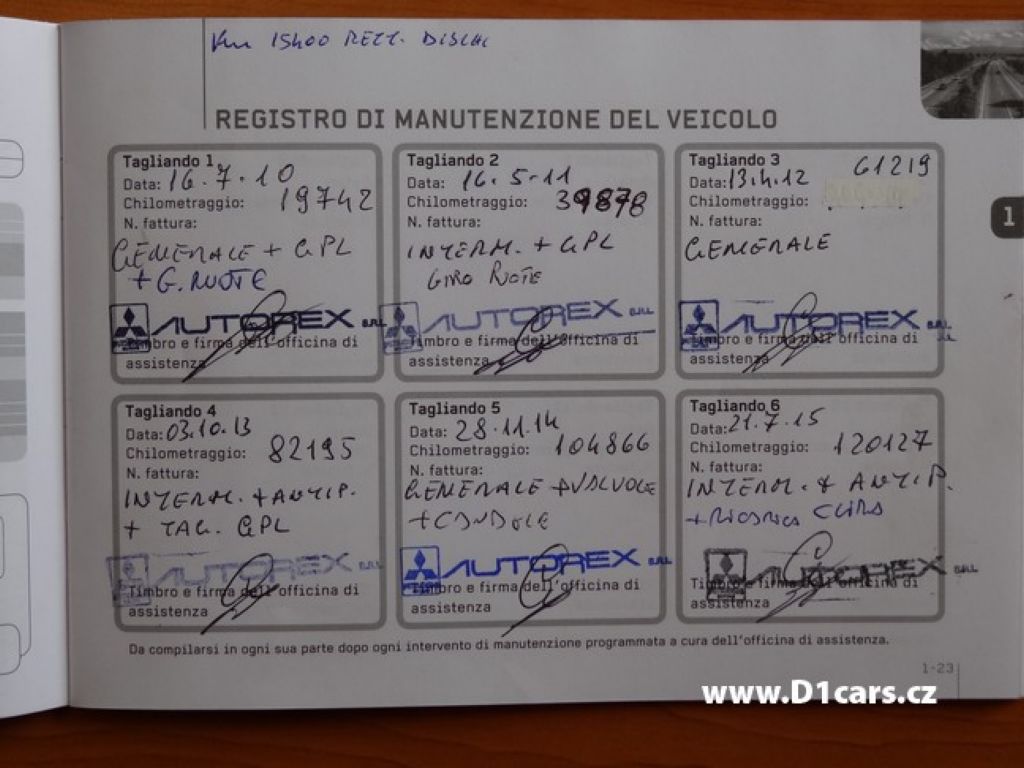 Km 15400 RETT. DISCHI
REGISTRO DI MANUTENZIONE DEL VEICOLO
Tagliando 1
Data: 16.7.10
Chilometraggio: 19742
N. fattura:
GENERALE + GPL
+ G. RUOTE
AUTOREX S.R.L.
Timbro e firma dell'officina di
assistenza
Tagliando 2
Data: 16.5.11
Chilometraggio: 39878
N. fattura:
INTERM. + GPL
GIRO RUOTE
AUTOREX S.R.L.
Timbro e firma dell'officina di
assistenza
Tagliando 3
61219
Data: 13.4.12
Chilometraggio:
N. fattura:
GENERALE
AUTOREX S.R.L.
Timbro e firma dell'officina di
assistenza
Tagliando 4
Data: 03.10.13
Chilometraggio: 82195
N. fattura:
INTERM. + ANTIP.
+ TAG. GPL
AUTOREX S.R.L.
Timbro e firma dell'officina di
assistenza
Tagliando 5
Data: 28.11.14
Chilometraggio: 104866
N. fattura:
GENERALE + VALVOLE
+ CANDELE
AUTOREX S.R.L.
Timbro e firma dell'officina di
assistenza
Tagliando 6
Data: 21.7.15
Chilometraggio: 120127
N. fattura:
INTERM. + ANTIP.
+ RICARICA CLIMA
AUTOREX S.R.L.
Timbro e firma dell'officina di
assistenza
1
Da compilarsi in ogni sua parte dopo ogni intervento di manutenzione programmata a cura dell'officina di assistenza.
1-23
www.D1cars.cz